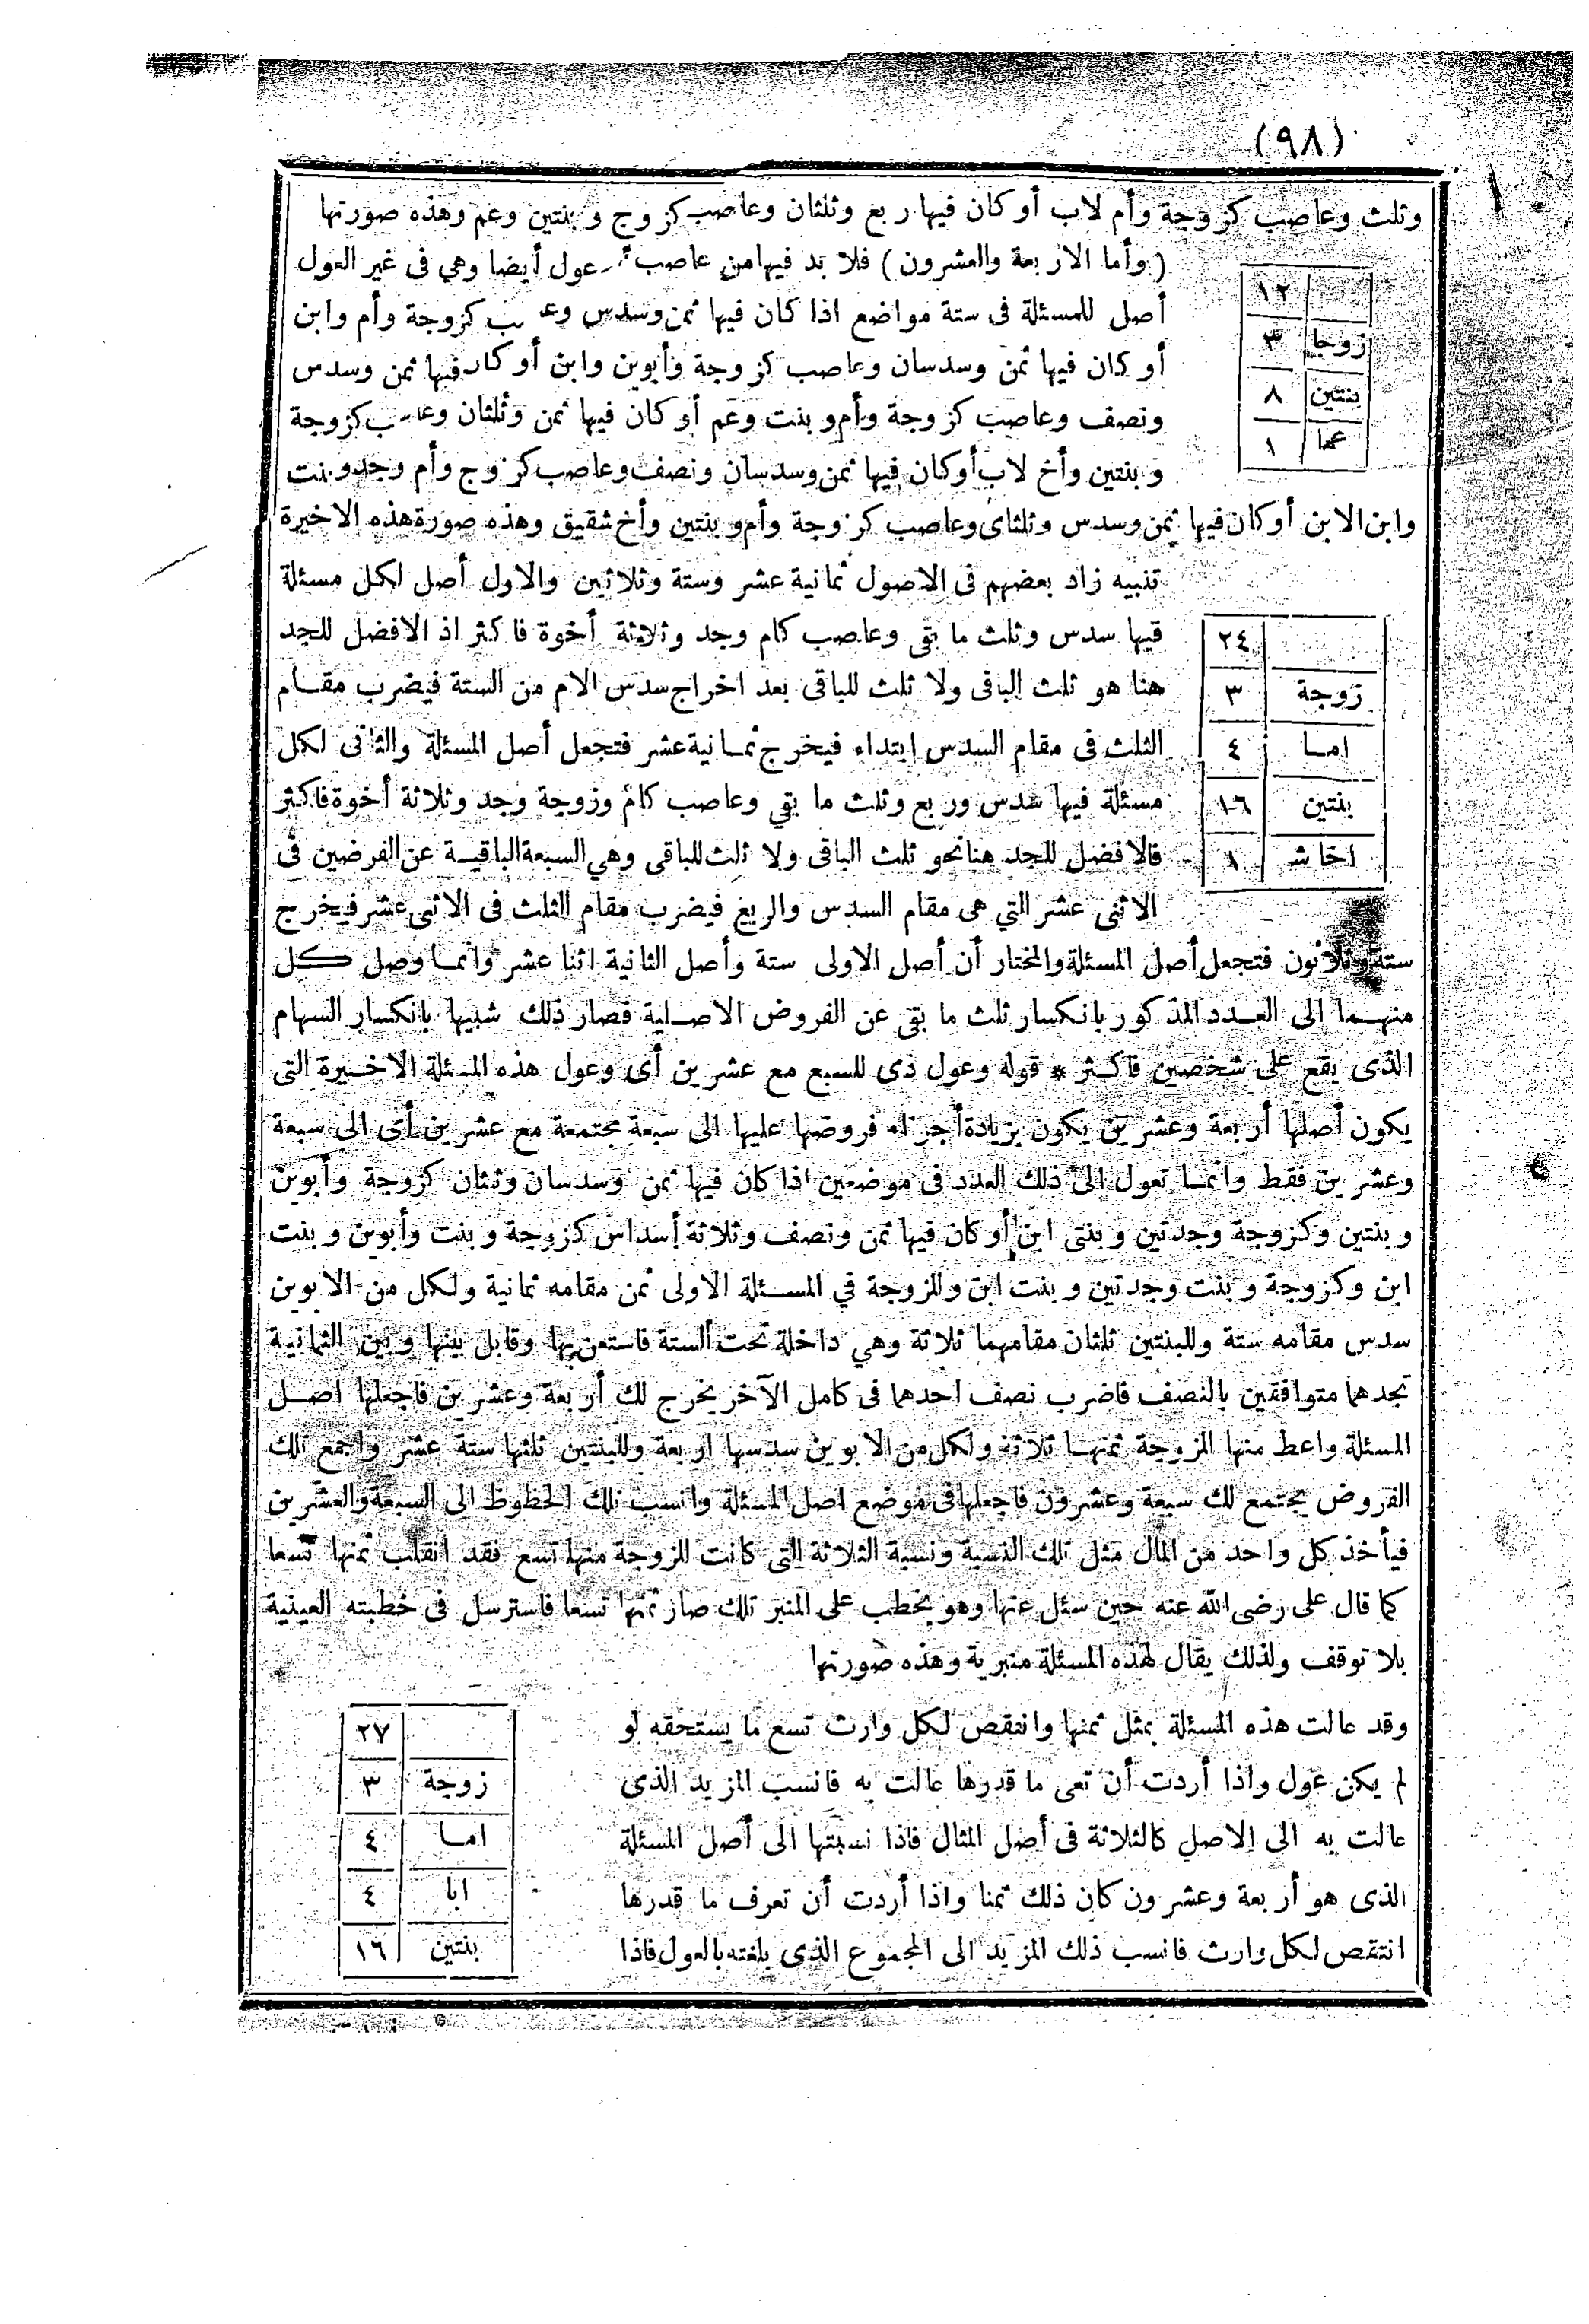 (٩٨)
وثلث وعاصب كزوجة وأم لاب أو كان فيها ربع وثلثان وعاصب كزوج وبنتين وعم وهذه صورتها
(وأما الاربعة والعشرون) فلا بد فيها من عاصب عول أيضا وهي فى غير العول
أصل للمسئلة فى ستة مواضع اذا كان فيها ثمن وسدس كزوجة وأم وابن
أو كان فيها ثمن وسدسان وعاصب كزوجة وأبوين وابن أو كان فيها ثمن وسدس
ونصف وعاصب كزوجة وأم وبنت وعم أو كان فيها ثمن وثلثان وعاصب كزوجة
وبنتين وأخ لاب أو كان فيها ثمن وسدسان ونصف وعاصب كزوج وأم وجد وبنت
١٢
زوجا ٣
بنتين ٨
عما ١
وابن الابن أو كان فيها ثمن وسدس وثلثاى وعاصب كزوجة وأم وبنتين وأخ شقيق وهذه صورة هذه الاخيرة
تنبيه زاد بعضهم فى الاصول ثمانية عشر وستة وثلاثين والاول أصل لكل مسئلة
فيها سدس وثلث ما بقى وعاصب كام وجد وثلاثة أخوة فاكثر اذ الافضل للجد
هنا هو ثلث الباقى ولا ثلث للباقى بعد اخراج سدس الام من الستة فيضرب مقام
الثلث فى مقام السدس ابتداء فيخرج ثمانية عشر فتجعل أصل المسئلة والثانى لكل
مسئلة فيها سدس وربع وثلث ما بقي وعاصب كام وزوجة وجد وثلاثة أخوة فاكثر
فالافضل للجد هنا نحو ثلث الباقى ولا ثلث للباقى وهي السبعة الباقية عن الفرضين فى
الاثنى عشر التي هى مقام السدس والربع فيضرب مقام الثلث فى الاثنى عشر فيخرج
٢٤
زوجة ٣
اما ٤
بنتين ١٦
اخاش ١
ستة وثلاثون فتجعل أصل المسئلة والمختار أن أصل الاولى ستة وأصل الثانية اثنا عشر وانما وصل كل
منهما الى العدد المذكور بانكسار ثلث ما بقى عن الفروض الاصلية فصار ذلك شبيها بانكسار السهام
الذى يقع على شخصين فاكثر * قوله وعول ذى للسبع مع عشرين أى وعول هذه المسئلة الاخيرة التى
يكون أصلها أربعة وعشرين يكون بزيادة أجزاء فروضها عليها الى سبعة مجتمعة مع عشرين أى الى سبعة
وعشرين فقط وانما تعول الى ذلك العدد فى موضعين اذا كان فيها ثمن وسدسان وثلثان كزوجة وأبوين
وبنتين وكزوجة وجدتين وبنتى ابن أو كان فيها ثمن ونصف وثلاثة أسداس كزوجة وبنت وأبوين وبنت
ابن وكزوجة وبنت وجدتين وبنت ابن وللزوجة في المسئلة الاولى ثمن مقامه ثمانية ولكل من الابوين
سدس مقامه ستة وللبنتين ثلثان مقامهما ثلاثة وهي داخلة تحت الستة فاستعن بها وقابل بينها وبين الثمانية
تجدهما متوافقين بالنصف فاضرب نصف احدهما فى كامل الآخر يخرج لك أربعة وعشرين فاجعلها اصل
المسئلة واعط منها الزوجة ثمنها ثلاثة ولكل من الابوين سدسها اربعة وللبنتين ثلثها ستة عشر واجمع تلك
الفروض يجتمع لك سبعة وعشرون فاجعلها فى موضع اصل المسئلة وانسب تلك الحظوظ الى السبعة والعشرين
فيأخذ كل واحد من المال مثل تلك النسبة ونسبة الثلاثة التى كانت للزوجة منها تسع فقد انقلب ثمنها تسعا
كما قال على رضى الله عنه حين سئل عنها وهو يخطب على المنبر تلك صار ثمنها تسعا فاسترسل فى خطبته العينية
بلا توقف ولذلك يقال لهذه المسئلة منبرية وهذه صورتها
وقد عالت هذه المسئلة بمثل ثمنها وانتقص لكل وارث تسع ما يستحقه لو
لم يكن عول واذا أردت أن تعى ما قدرها عالت به فانسب المزيد الذى
عالت به الى الاصل كالثلاثة فى أصل المثال فاذا نسبتها الى أصل المسئلة
الذى هو أربعة وعشرون كان ذلك ثمنا واذا أردت أن تعرف ما قدرها
انتقص لكل وارث فانسب ذلك المزيد الى المجموع الذى بلغته بالعول فاذا
٢٧
زوجة ٣
اما ٤
ابا ٤
بنتين ١٦